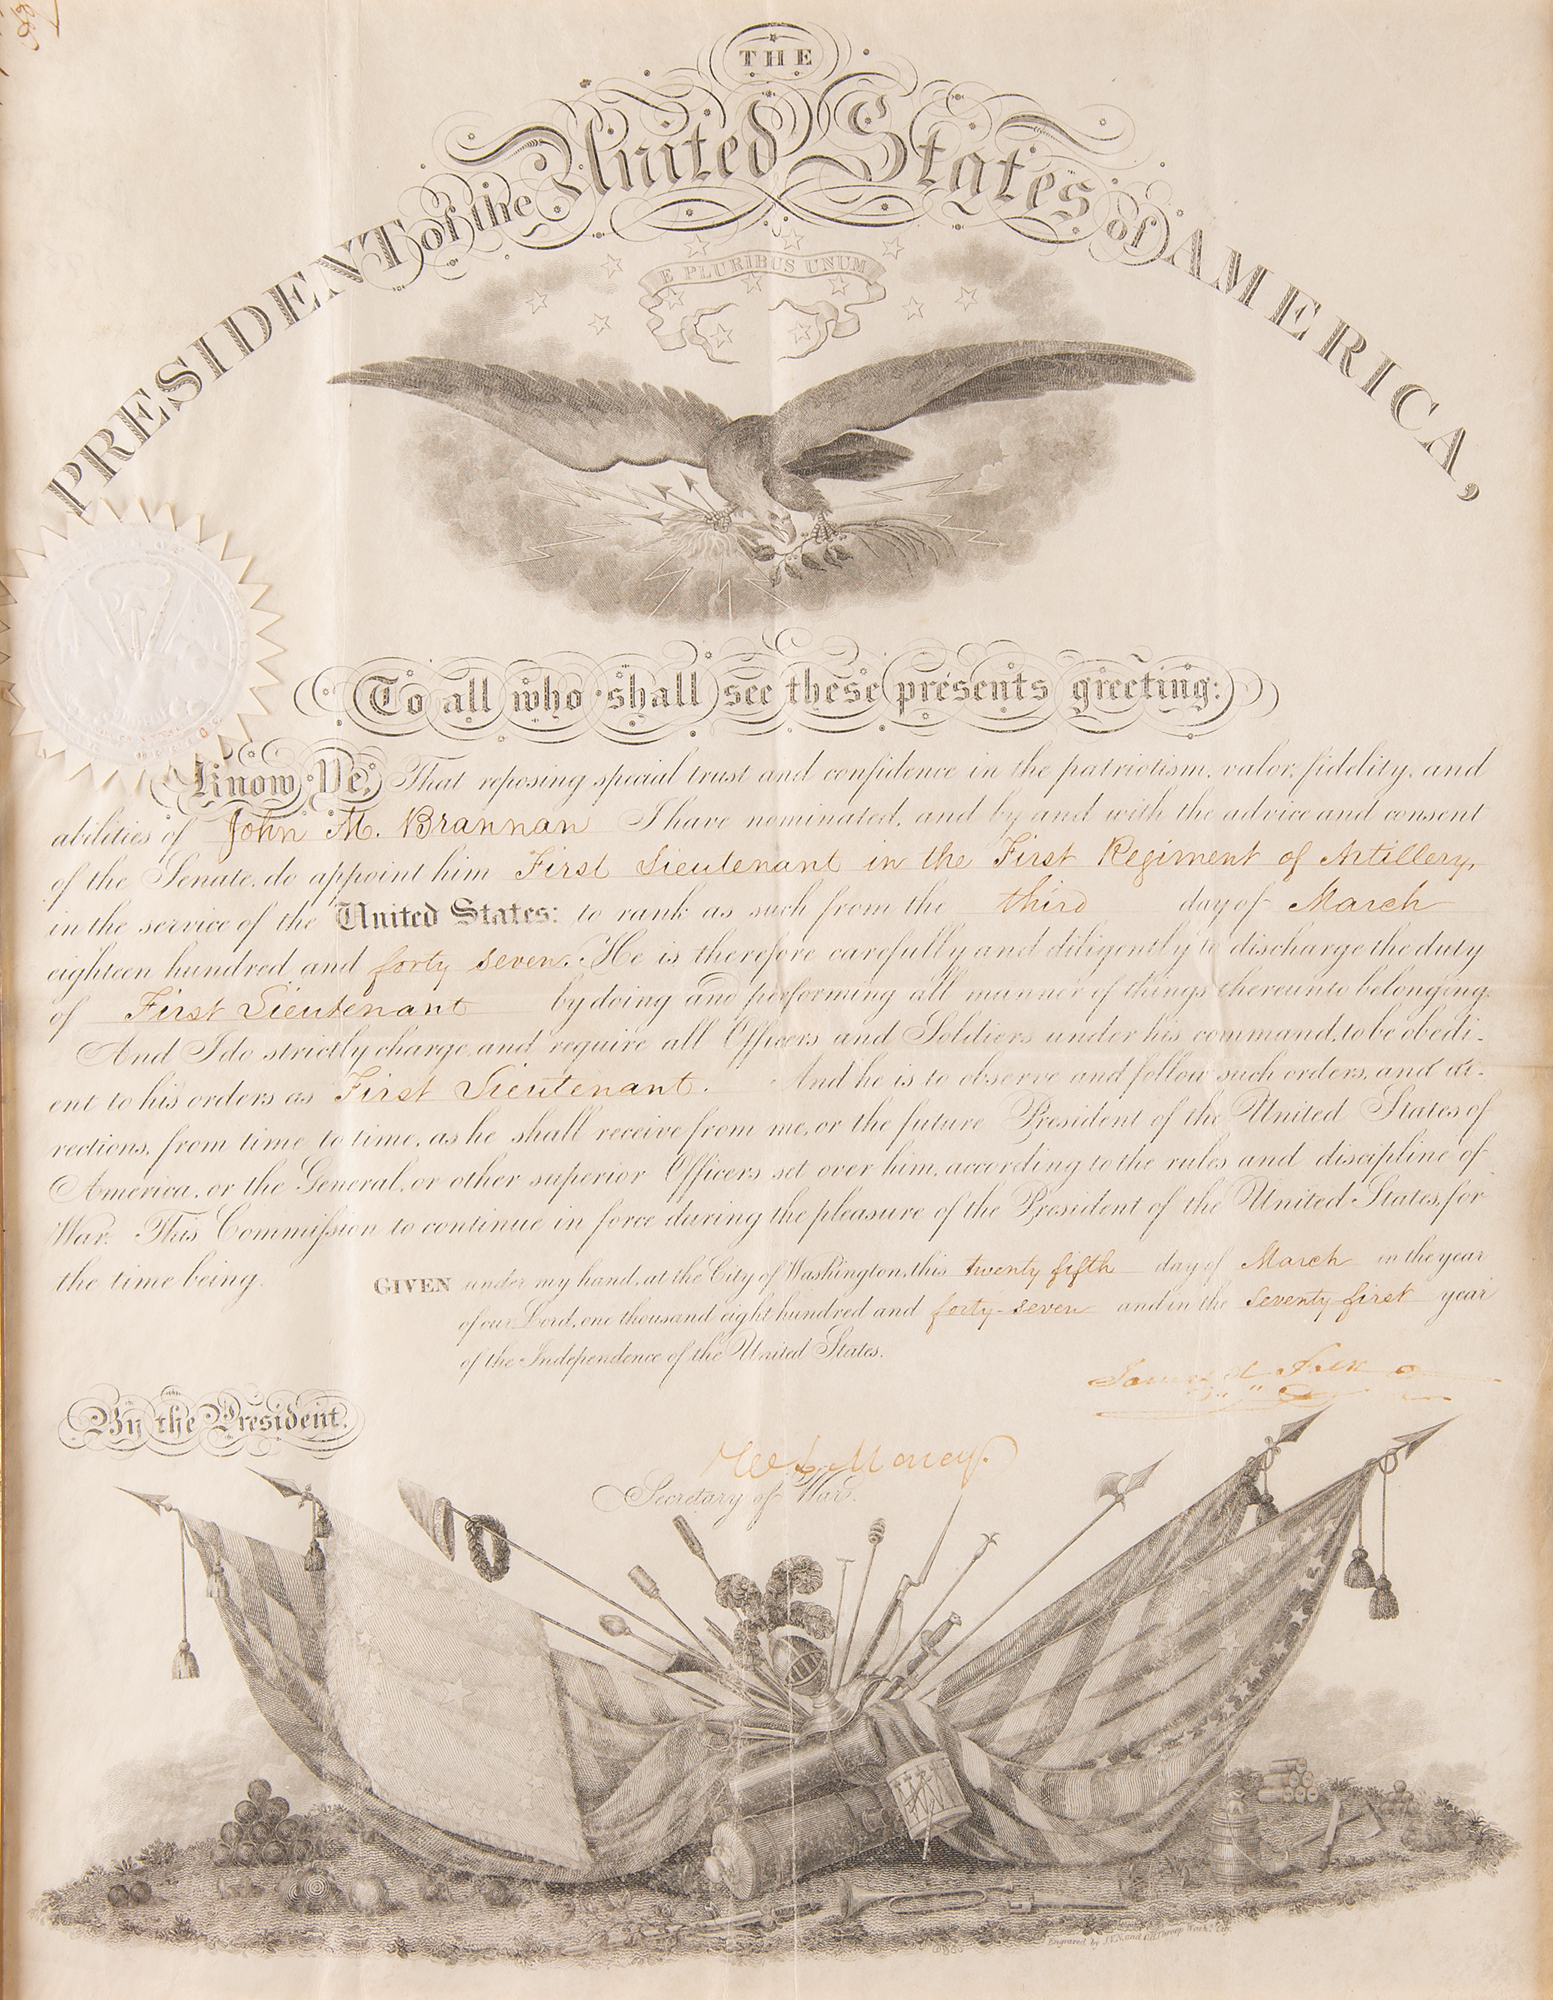 THE
PRESIDENT of the United States of AMERICA,
E PLURIBUS UNUM
To all who shall see these presents greeting:
Know Ye, That reposing special trust and confidence in the patriotism, valor, fidelity, and
abilities of John M. Brannan I have nominated, and by and with the advice and consent
of the Senate, do appoint him First Lieutenant in the First Regiment of Artillery,
in the service of the United States: to rank as such from the third day of March
eighteen hundred and forty seven. He is therefore carefully and diligently to discharge the duty
of First Lieutenant by doing and performing all manner of things thereunto belonging.
And I do strictly charge, and require all Officers and Soldiers under his command, to be obedi-
ent to his orders as First Lieutenant. And he is to observe and follow such orders, and di-
rections, from time to time, as he shall receive from me, or the future President of the United States of
America, or the General, or other superior Officers set over him, according to the rules and discipline of
War. This Commission to continue in force during the pleasure of the President of the United States, for
the time being.
GIVEN under my hand, at the City of Washington, this twenty fifth day of March in the year
of our Lord, one thousand eight hundred and forty-seven and in the seventy first year
of the Independence of the United States.
By the President.
W. L. Marcy.
Secretary of War.
Engraved by